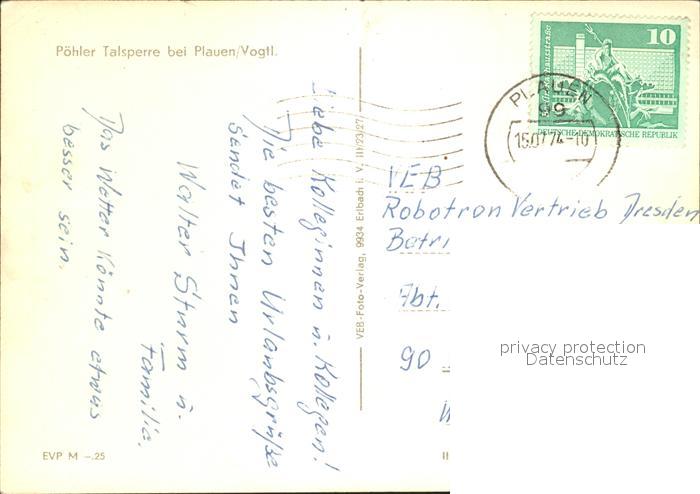 Pöhler Talsperre bei Plauen/Vogtl.
Liebe Kolleginnen u. Kollegen!
Die besten Urlaubsgrüße
sendet Ihnen
Walter Sturm u.
Familie.
Das Wetter könnte etwas
besser sein.
EVP M –.25
VEB-Foto-Verlag, 9934 Erlbach i. V. III/23/27
10
DEUTSCHE DEMOKRATISCHE REPUBLIK
PLAUEN
99
15.07.74-10
VEB
Robotron Vertrieb Dresden
Betri
Abt.
90
privacy protection
Datenschutz